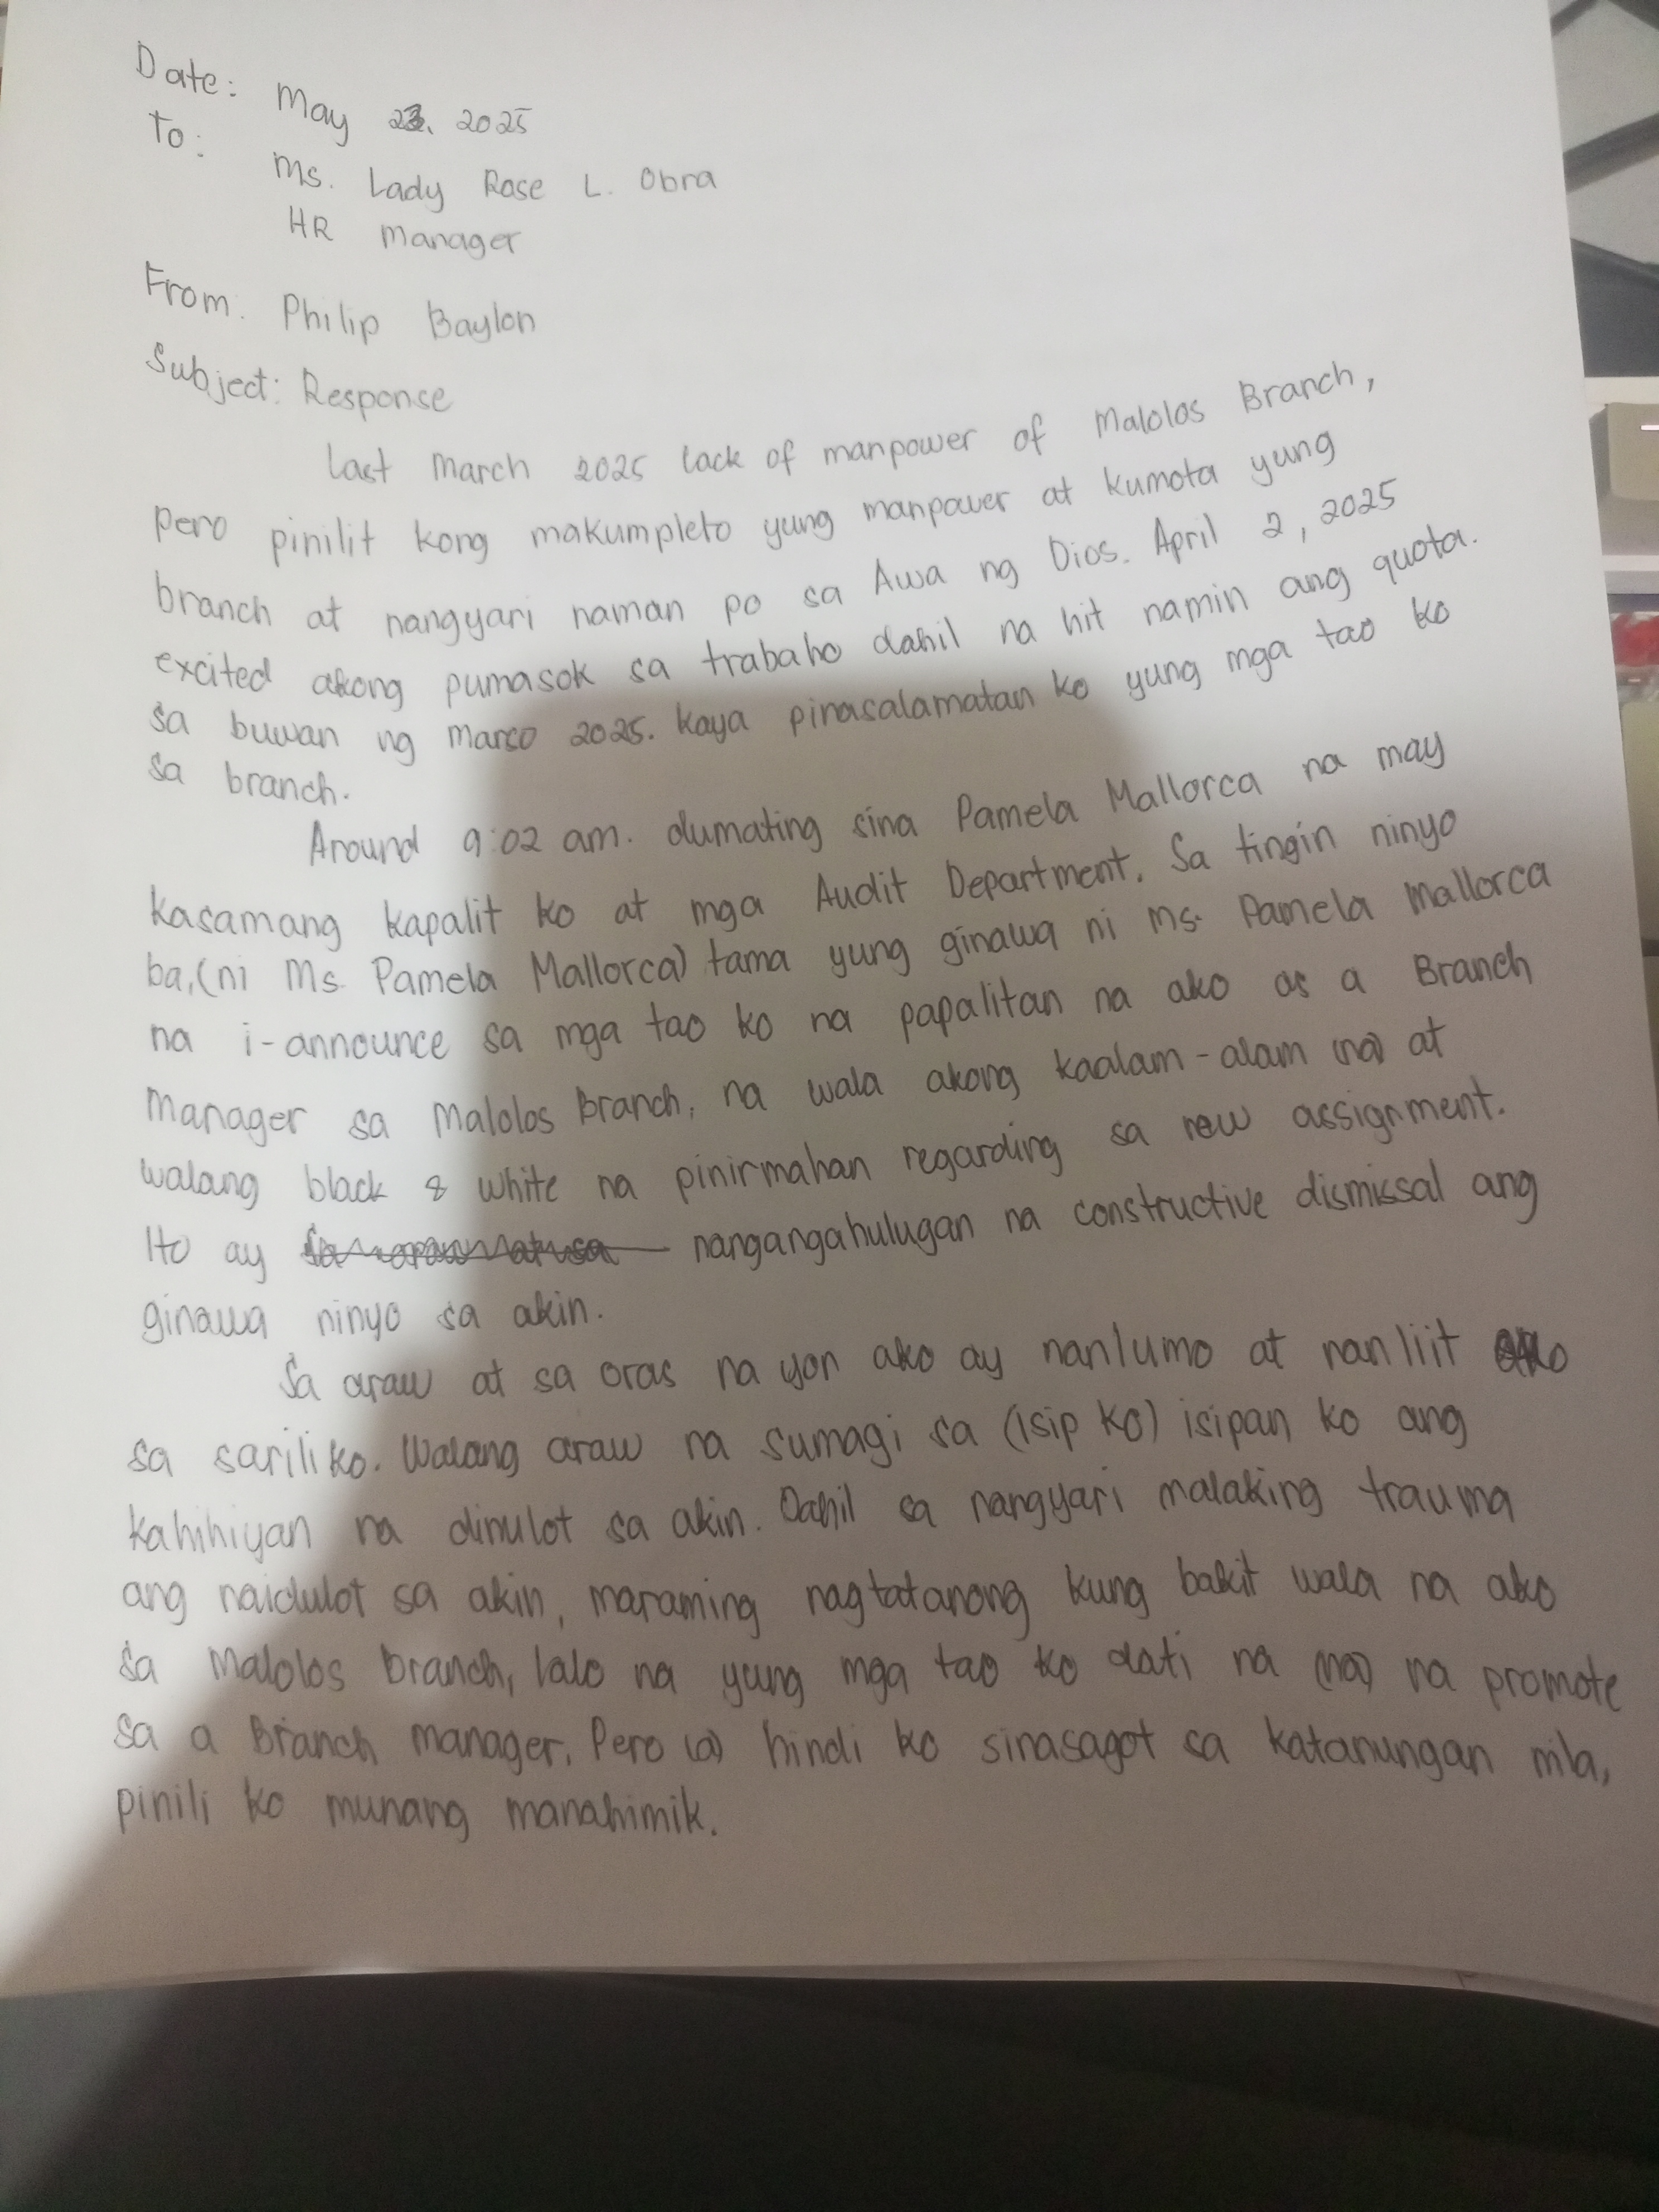 Date: May 23, 2025
To:
Ms. Lady Rose L. Obra
HR Manager
From. Philip Baylon
Subject: Response
Last March 2025 lack of manpower of Malolos Branch,
pero pinilit kong makumpleto yung manpower at kumota yung
branch at nangyari naman po sa Awa ng Dios. April 2, 2025
excited akong pumasok sa trabaho dahil na hit namin ang quota.
sa buwan ng Marso 2025. Kaya pinasalamatan ko yung mga tao ko
sa branch.
Around 9:02 am. dumating sina Pamela Mallorca na may
kasamang kapalit ko at mga Audit Department. Sa tingin ninyo
ba, (ni Ms. Pamela Mallorca) tama yung ginawa ni Ms. Pamela Mallorca
na i-announce sa mga tao ko na papalitan na ako as a Branch
Manager sa Malolos Branch, na wala akong kaalam-alam (na) at
walang black & white na pinirmahan regarding sa new assignment.
Ito ay nangangahulugan na constructive dismissal ang
ginawa ninyo sa akin.
Sa araw at sa oras na yon ako ay nanlumo at nanliit
sa sariliko. Walang araw na sumagi sa (isip ko) isipan ko ang
kahihiyan na dinulot sa akin. Dahil sa nangyari malaking trauma
ang naidulot sa akin, maraming nagtatanong kung bakit wala na ako
sa Malolos branch, lalo na yung mga tao ko dati na (na) na promote
sa a Branch manager. Pero (a) hindi ko sinasagot sa katanungan nila,
pinili ko munang manahimik.